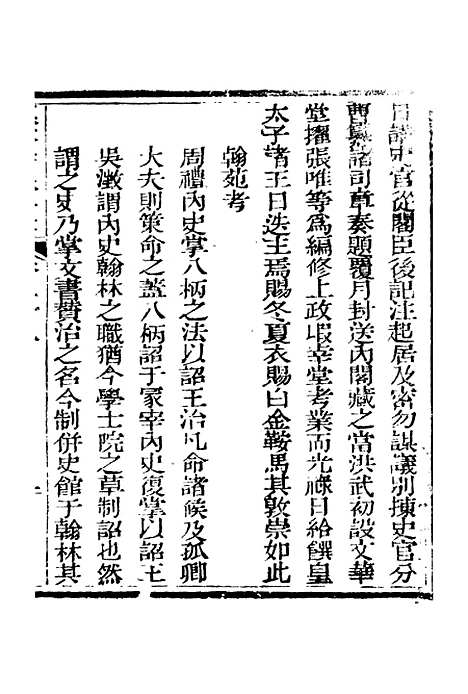 日講史官從閣臣後記注起居及密勿謀議別揀史官分
曹纂諸司章奏題覆月封送內閣藏之當洪武初設文華
堂擢張唯等爲編修上政暇幸堂考業而光祿日給饌皇
太子諸王日迭王焉賜冬夏衣賜白金鞍馬其敦崇如此
翰苑考
周禮內史掌八柄之法以詔王治凡命諸候及孤卿
大夫則策命之蓋八柄詔于冢宰內史復掌以詔王
吳澂謂內史翰林之職猶今學士院之草制詔也然
謂之史乃掌文書贊治之名今制併史館于翰林其